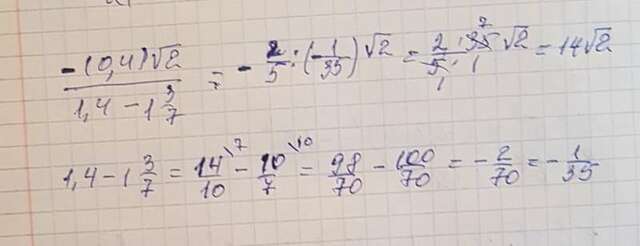 -(0,4)√2 / 1,4 - 1 3/7 = - 2/5 : (-1/35) √2 = 2/5 · 35 √2 = 14√2
1,4 - 1 3/7 = 14/10 \7 - 10/7 \10 = 98/70 - 100/70 = - 2/70 = - 1/35